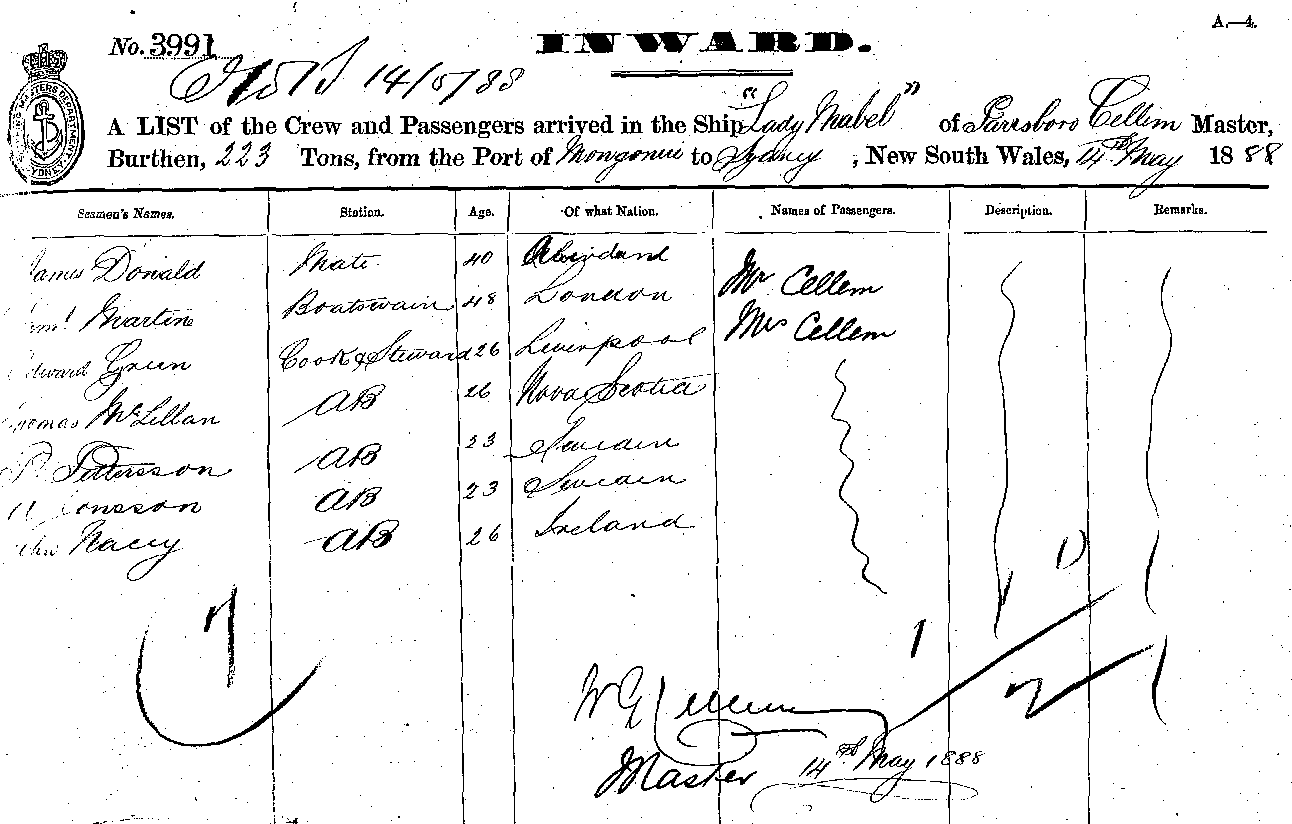 A.—4.
No. 3991
INWARD.
14/5/88
A LIST of the Crew and Passengers arrived in the Ship "Lady Mabel" of Parrsboro Cellem Master,
Burthen, 223 Tons, from the Port of Mongonui to Sydney, New South Wales, 14th May 1888
Seamen's Names. Station. Age. Of what Nation. Names of Passengers. Description. Remarks.
James Donald Mate 40 Aberdeen
Martin Boatswain 48 London Mr Cellem
Edward Green Cook & Steward 26 Liverpool Mrs Cellem
Thomas McLellan AB 26 Nova Scotia
P. Pettersson AB 23 Sweden
Jonsson AB 23 Sweden
John Nacey AB 26 Ireland
7
1 1
2
W G Cellem
Master 14th May 1888